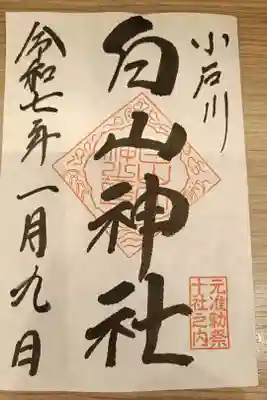 小石川
白山神社
元准勅祭
十社之内
令和七年一月九日